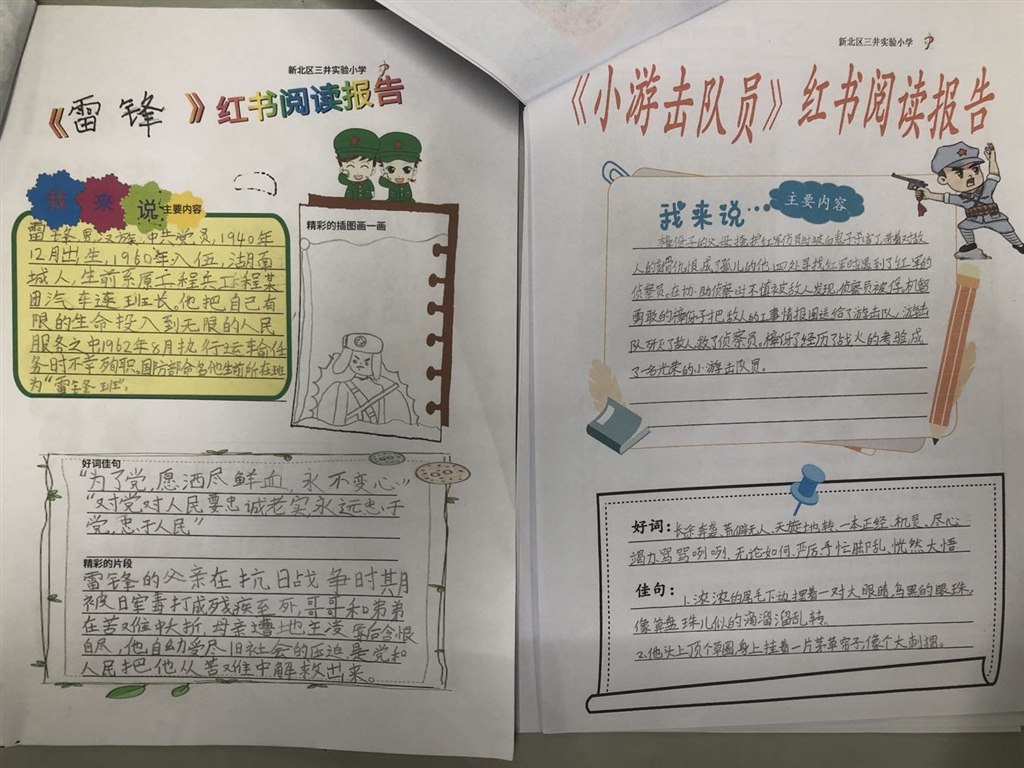 新北区三井实验小学
《雷锋》红书阅读报告
我来说 主要内容
雷锋男汉族,中共党员,1940年
12月出生,1960年入伍,湖南
城人,生前系原工程兵工程某
团汽车连班长。他把自己有
限的生命投入到无限的人民
服务之中1962年8月执行运输任
务时不幸殉职,国防部命名他生前所在班
为“雷锋班”。
精彩的插图画一画
好词佳句
“为了党,愿洒尽鲜血,永不变心”
“对党对人民要忠诚老实,永远忠于
党,忠于人民”
精彩的片段
雷锋的父亲在抗日战争时期
被日军毒打成残疾至死,哥哥和弟弟
在苦难中夭折,母亲遭地主凌辱后含恨
自尽,他自幼受尽旧社会的压迫 党和
人民把他从苦难中解救出来。
新北区三井实验小学
《小游击队员》红书阅读报告
我来说… 主要内容
的父母掩护红军伤员时被白鬼子杀害了,带着对敌
人的 仇恨,成了孤儿的他,四处寻找红军时遇到了红军的
侦察员。在协助侦察时不慎被敌人发现,侦察员被俘,机智
勇敢的 子把敌人的工事情报图送给了游击队,游击
队歼灭了敌人救了侦察员。 经历了战火的考验,成
了一名光荣的小游击队员。
好词:长途奔袭、荒僻无人、天旋地转、一本正经、机灵、尽心
竭力、骂骂咧咧、无论如何、严厉、手忙脚乱、恍然大悟
佳句:1.浓浓的眉毛下边摆着一对大眼睛,乌黑的眼珠,
像算盘珠儿似的滴溜溜乱转.
2.他头上顶个草圈,身上挂着一片茅草帘子,像个大刺猬。